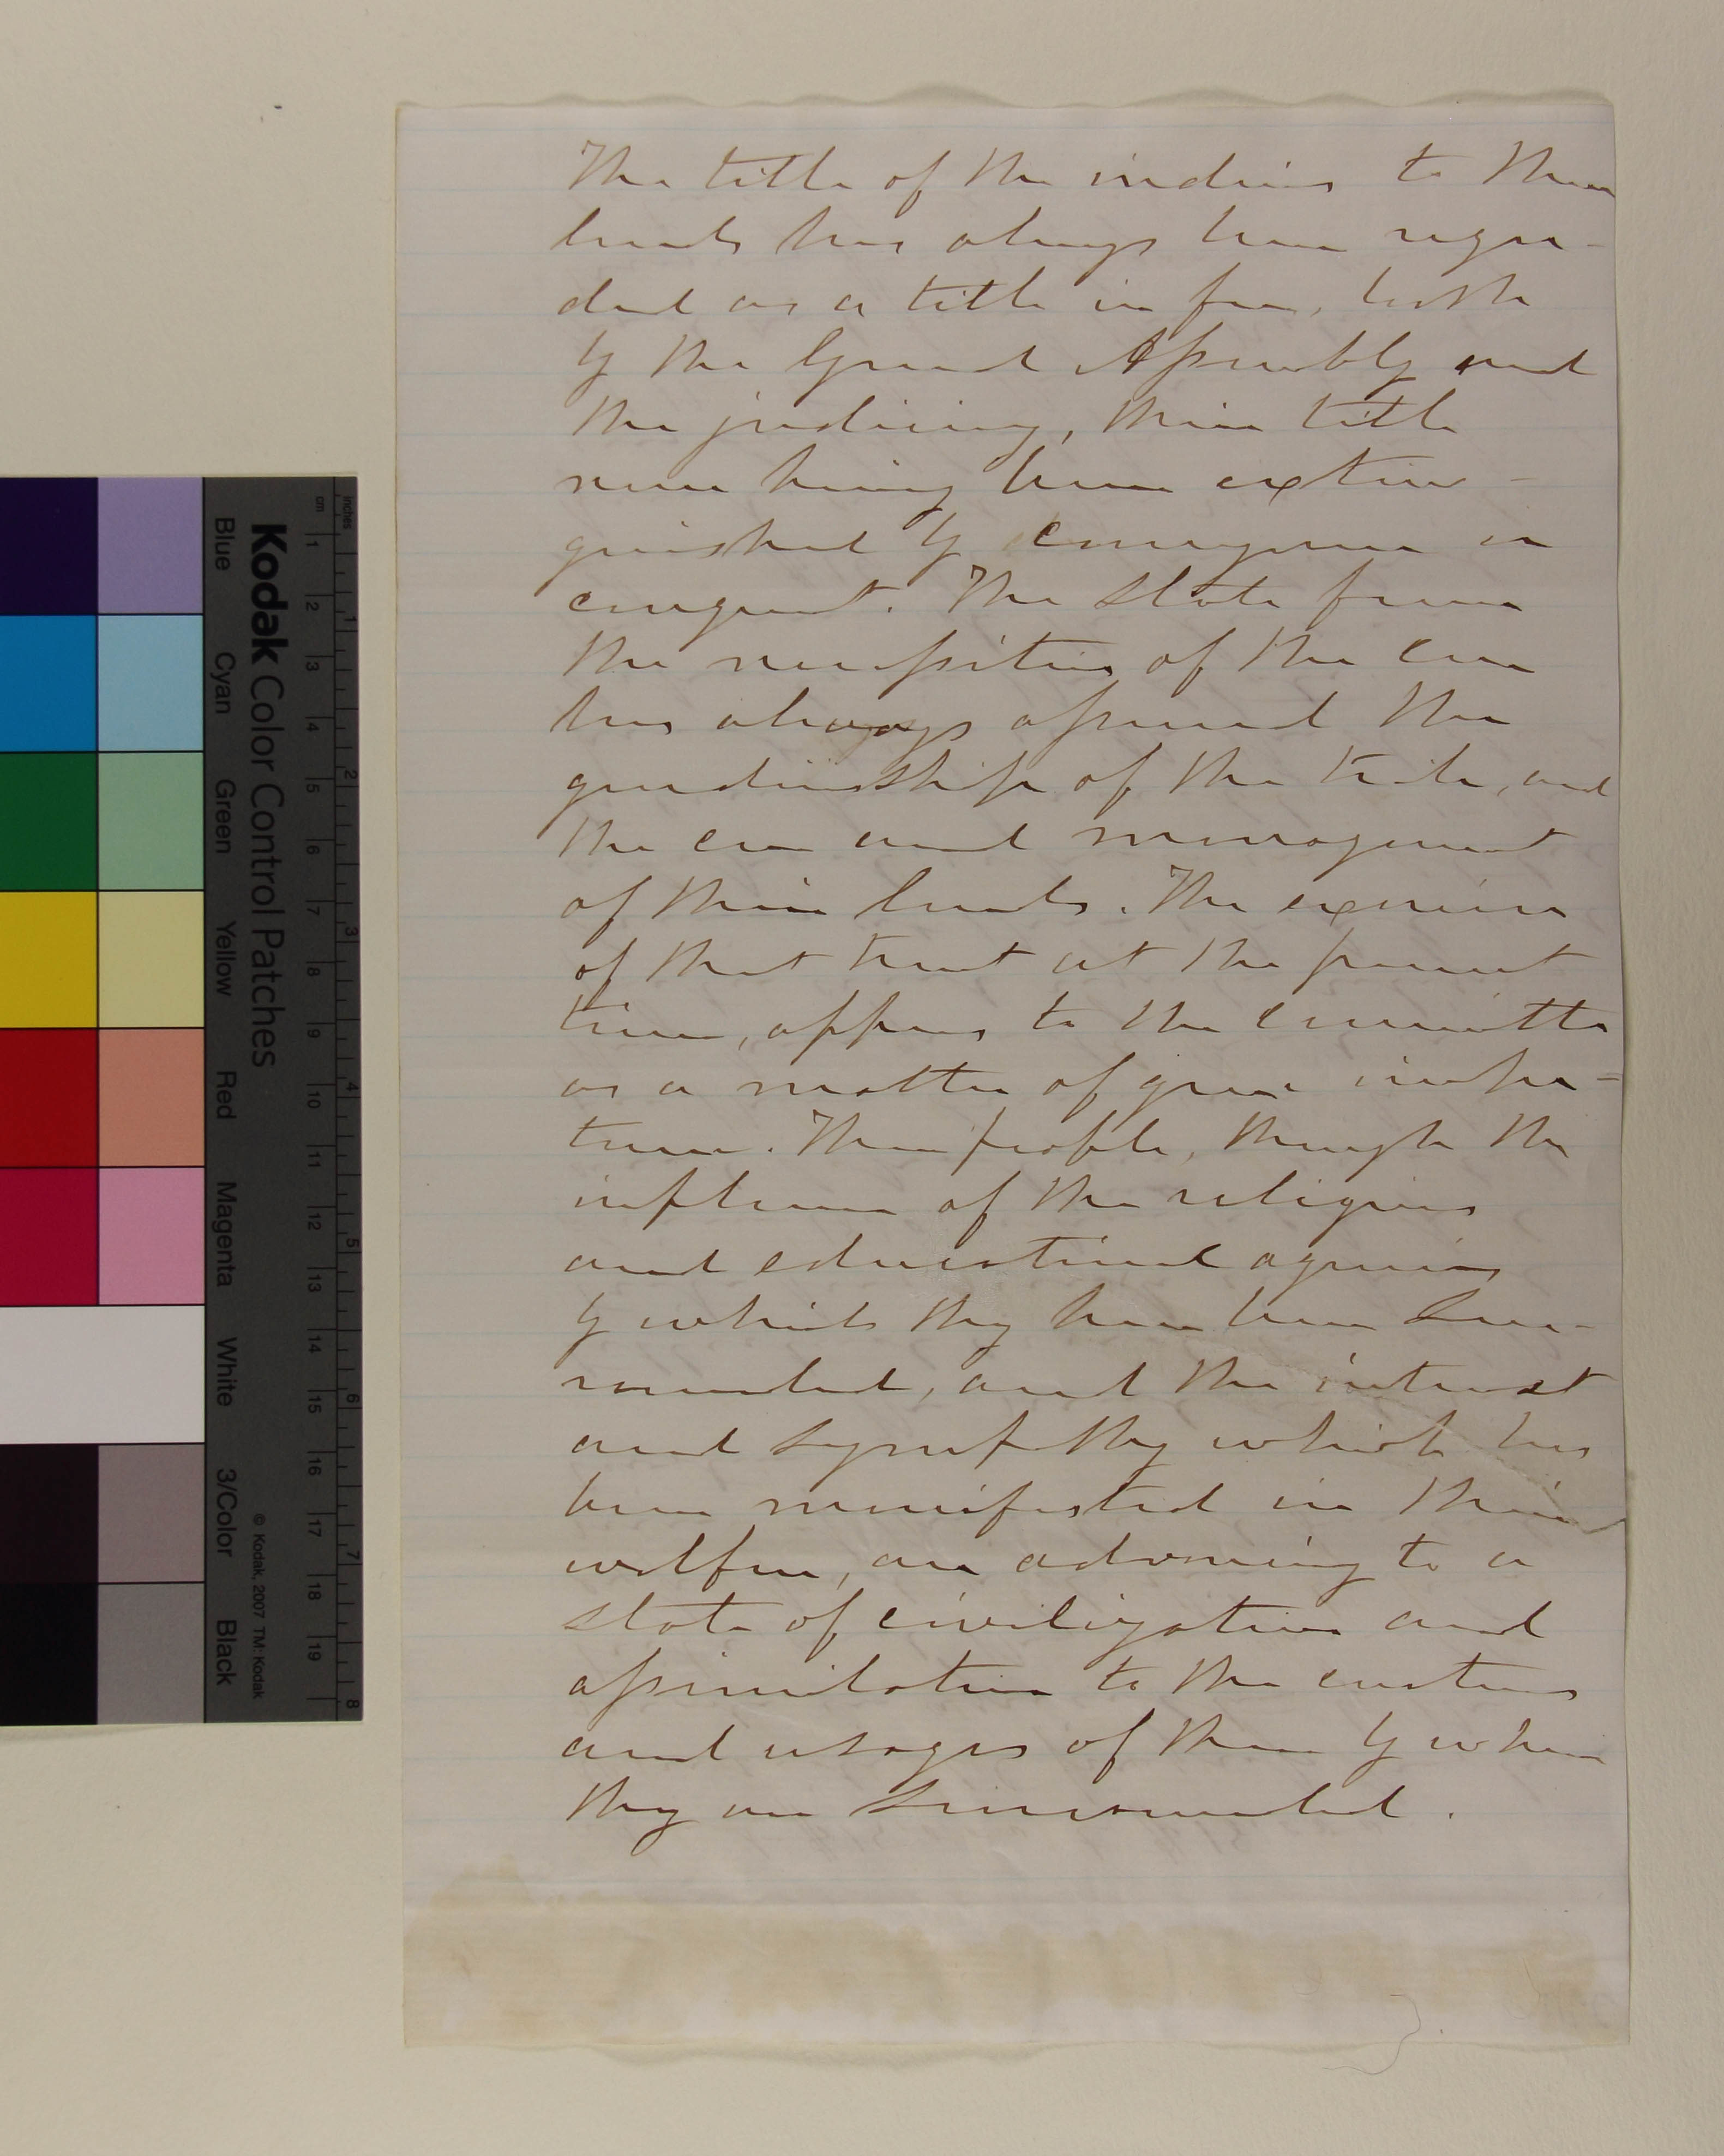 The title of the indians to these
lands has always been regar-
ded as a title in fee, both
by the General Assembly and
the judiciary, their title
never having been extin-
guished by conveyance or
conquest. The State from
the necessities of the case
has always assumed the
guardianship of the tribe, and
the care and management
of their lands. The exercise
of that trust at the present
time, appears to the committee
as a matter of grave impor-
tance. These people, through the
influence of the religious
and educational agencies
by which they have been sur-
rounded, and the interest
and sympathy which has
been manifested in their
welfare, are advancing to a
state of civilization and
assimilation to the customs
and usages of those by whom
they are surrounded.
inches
cm
1 2 3 4 5 6 7 8
1 2 3 4 5 6 7 8 9 10 11 12 13 14 15 16 17 18 19
Kodak Color Control Patches
© Kodak, 2007 TM: Kodak
Blue Cyan Green Yellow Red Magenta White 3/Color Black